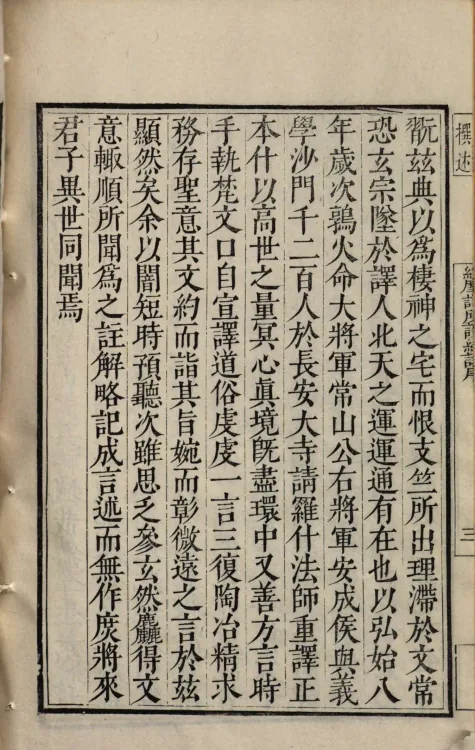 翫茲典以爲棲神之宅而恨支竺所出理滯於文常
恐玄宗墜於譯人北天之運運通有在也以弘始八
年歲次鶉火命大將軍常山公右將軍安成侯與義
學沙門千二百人於長安大寺請羅什法師重譯正
本什以高世之量冥心眞境旣盡環中又善方言時
手執梵文口自宣譯道俗虔虔一言三復陶冶精求
務存聖意其文約而詣其旨婉而彰微遠之言於茲
顯然矣余以闇短時預聽次雖思乏參玄然麤得文
意輙順所聞爲之註解略記成言述而無作庶將來
君子異世同聞焉
撰述
三